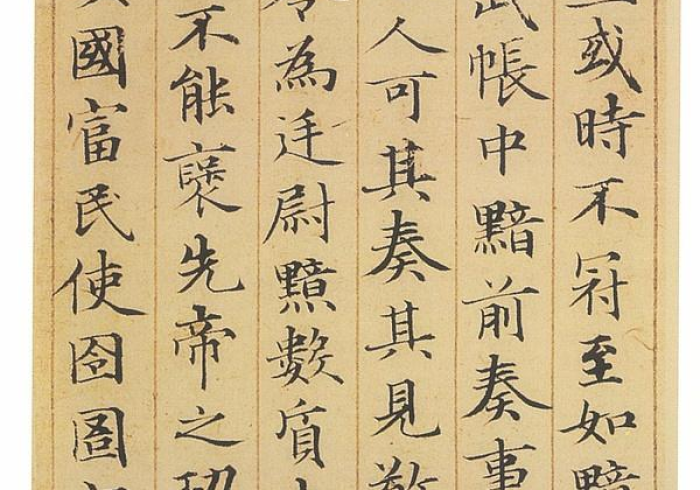 或時不冠至如黯
武帳中黯前奏事
人可其奏其見敬
令為廷尉黯數質
不能褒先帝之功
國富民使囹圄